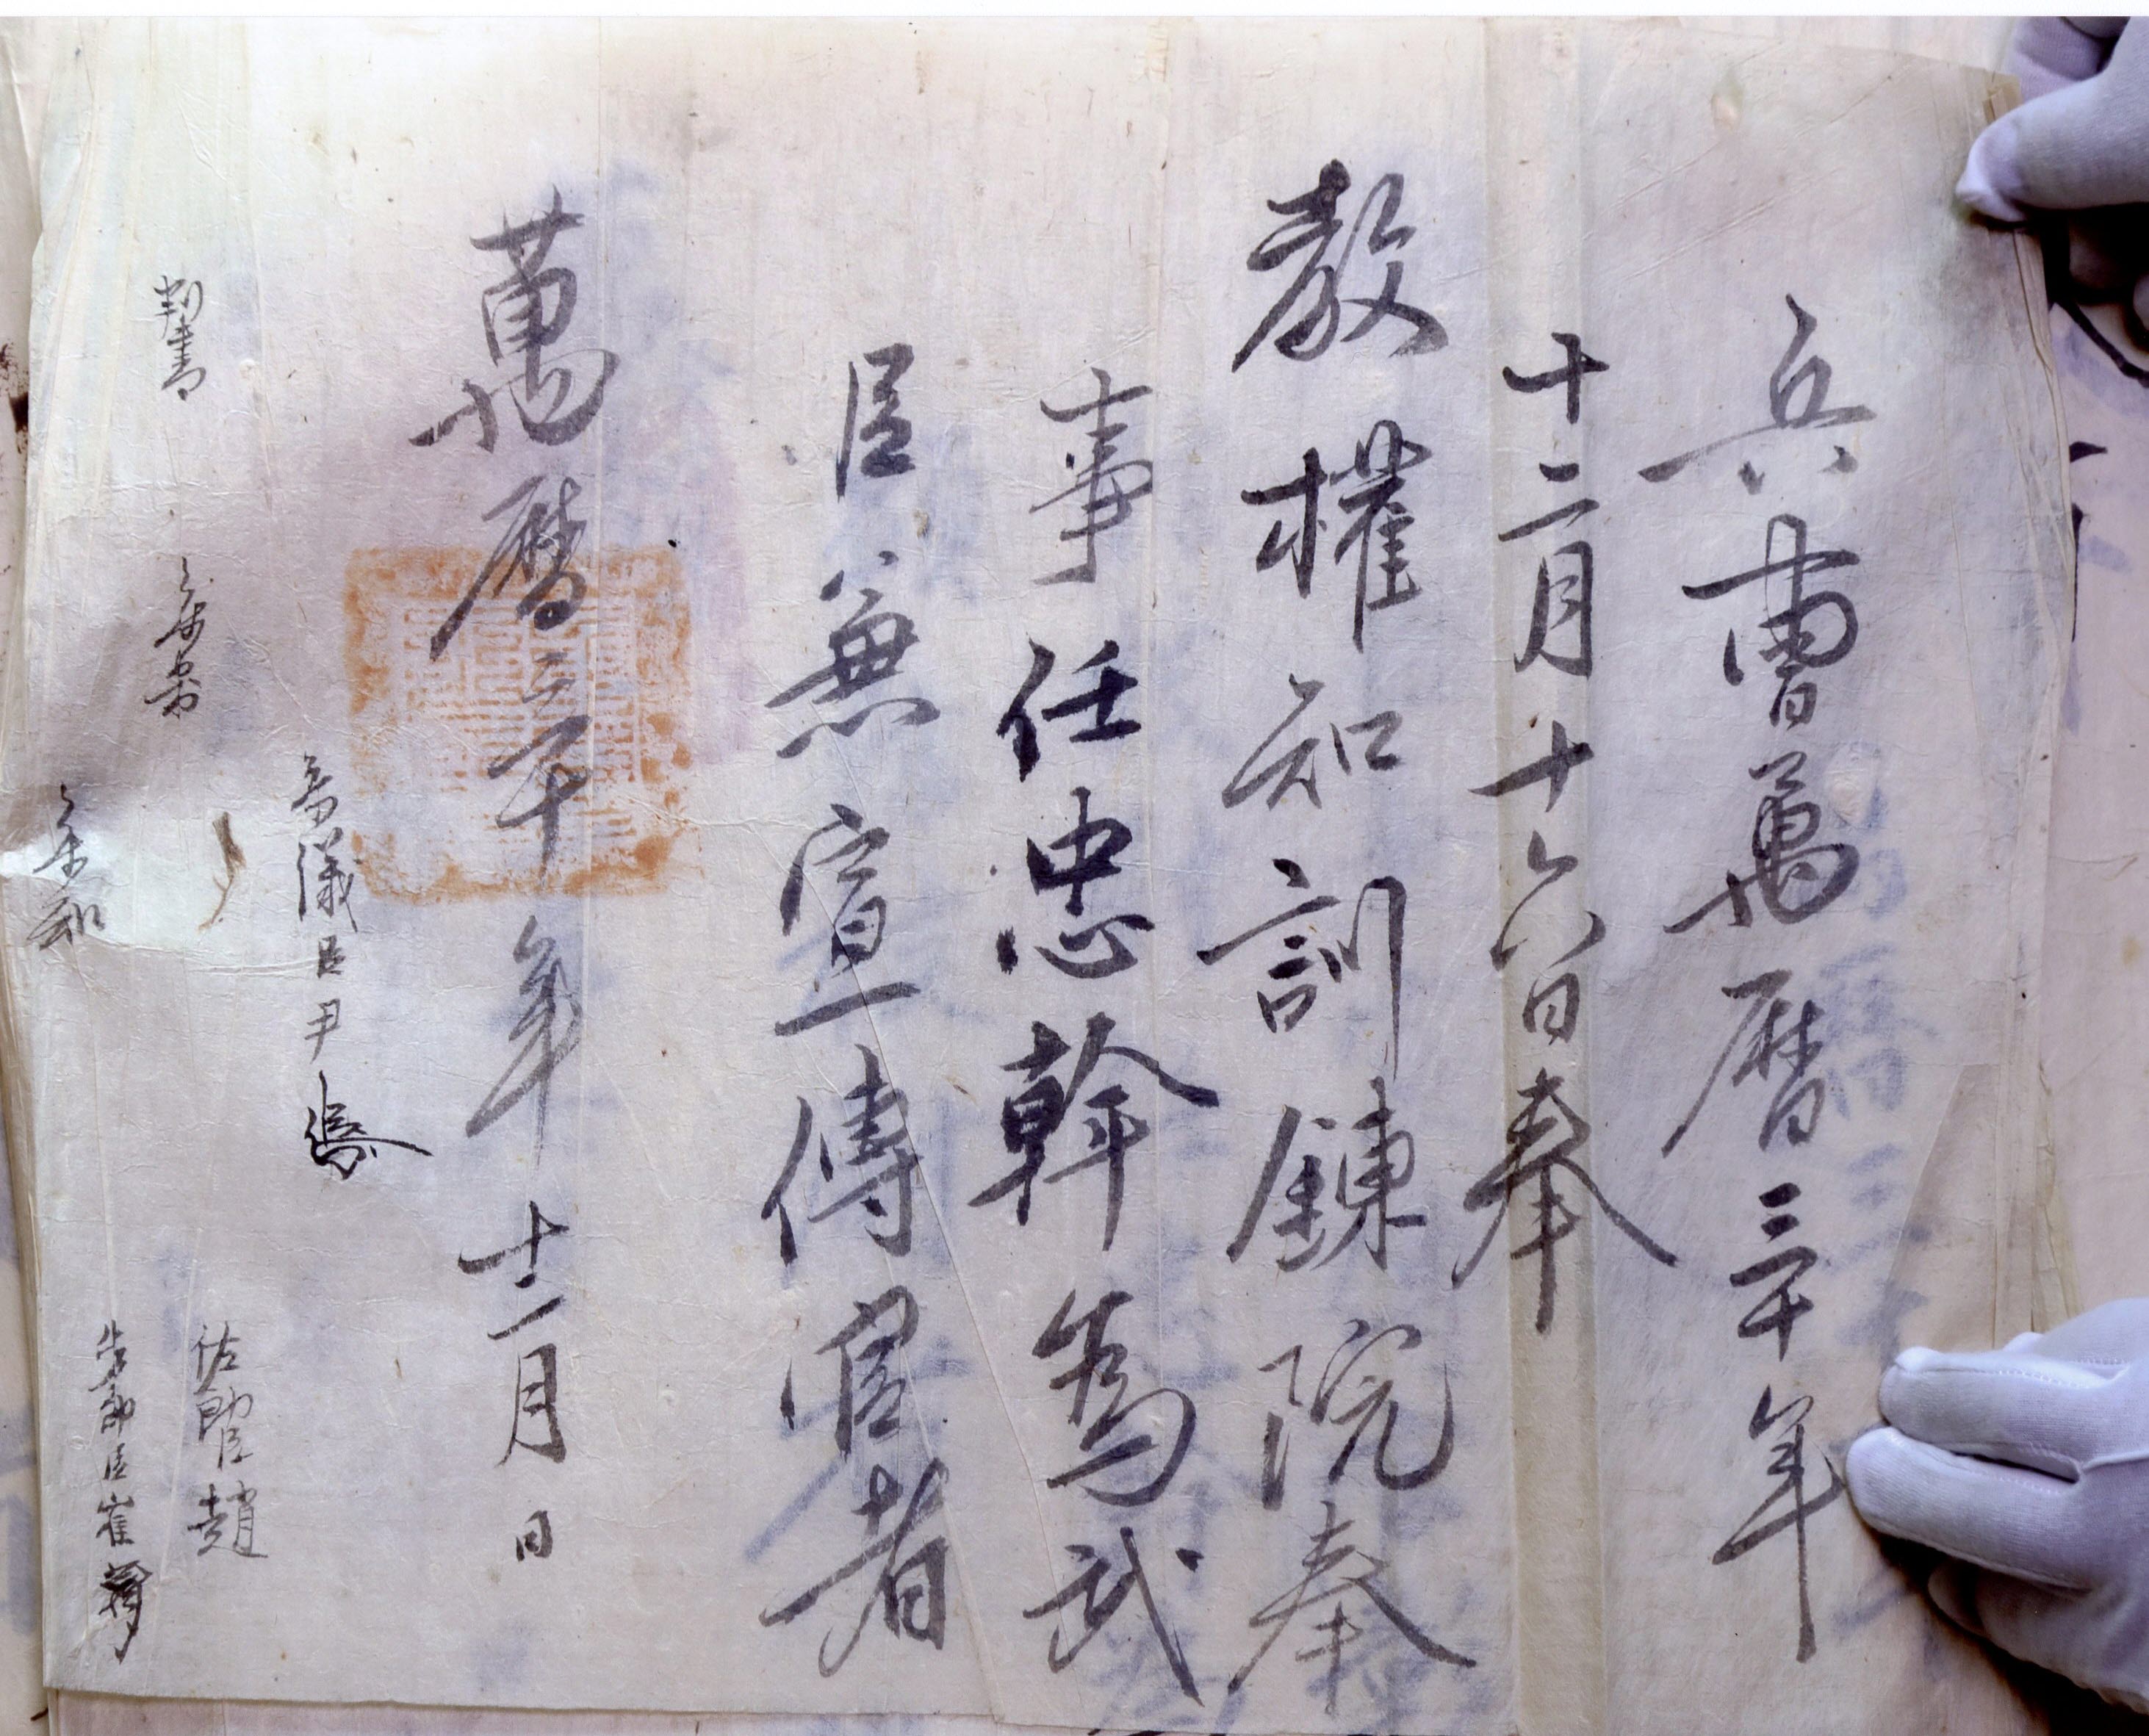 兵曹萬曆三十年
十二月十六日奉
教權知訓鍊院奉
事任忠幹爲武
臣兼宣傳官者
萬曆三十年十二月 日
叅議臣尹
判書
叅判
叅知
佐郎臣趙
正郎臣崔